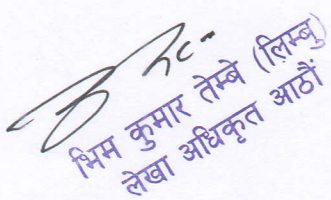 भिम कुमार तेम्बे (लिम्बु)
लेखा अधिकृत आठौं